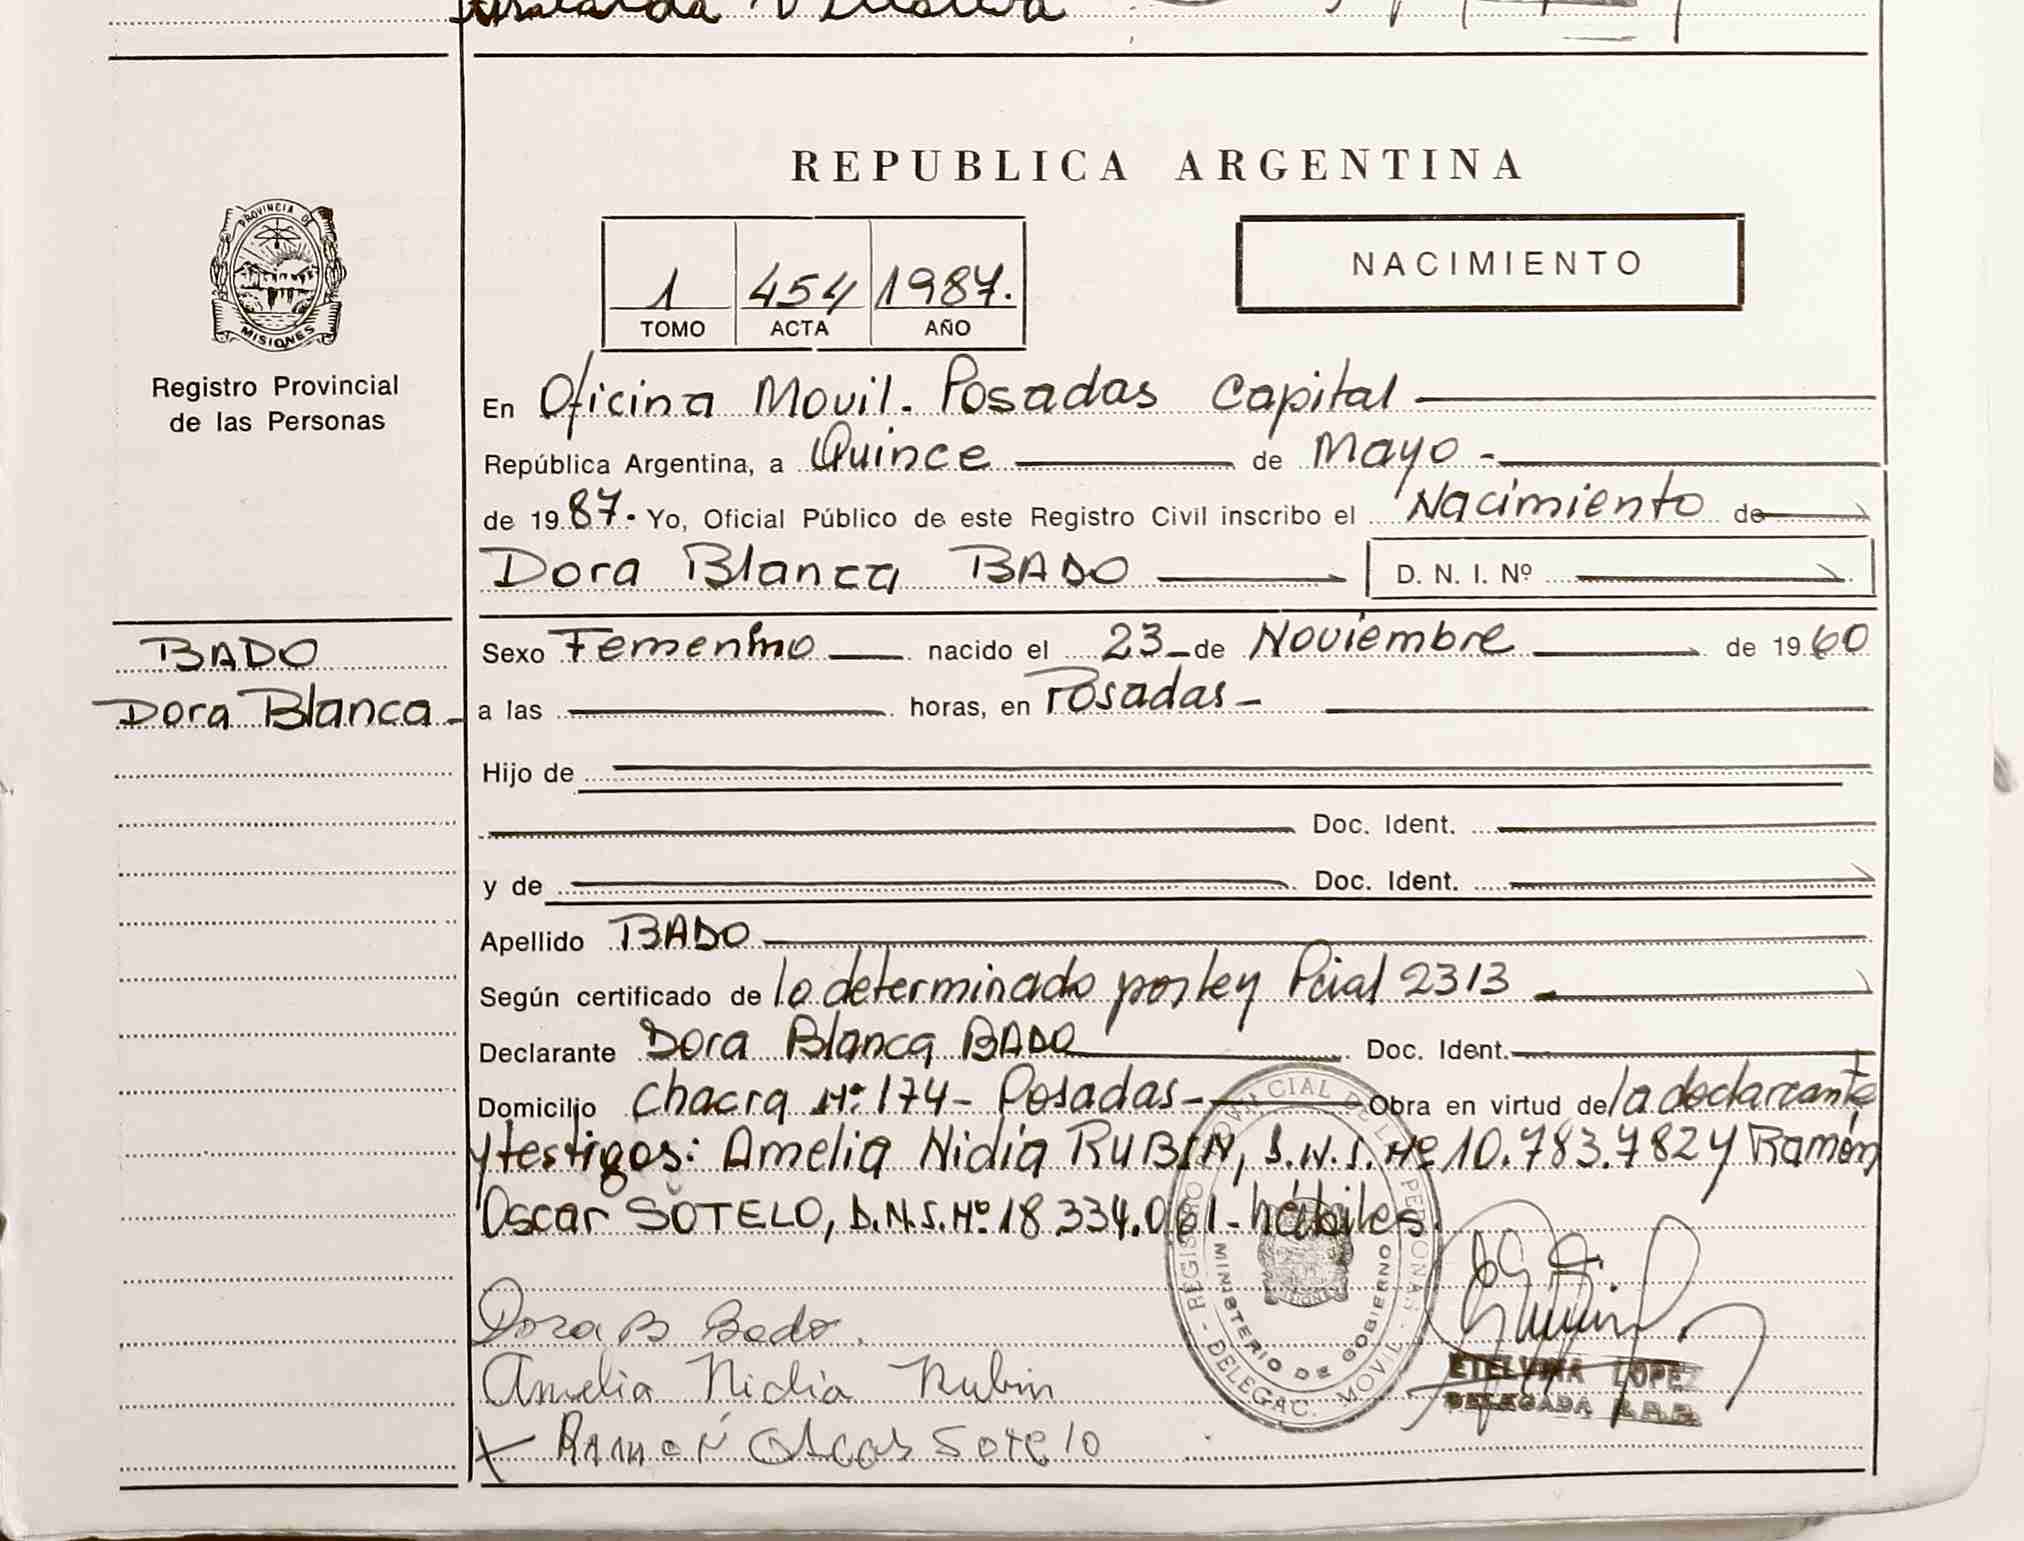 REPUBLICA ARGENTINA
PROVINCIA DE
MISIONES
Registro Provincial
de las Personas
1 454 1987.
TOMO ACTA AÑO
NACIMIENTO
En Oficina Movil. Posadas Capital
República Argentina, a Quince de Mayo -
de 1987. Yo, Oficial Público de este Registro Civil inscribo el Nacimiento de
Dora Blanca BADO D. N. I. Nº
BADO
Dora Blanca -
Sexo Femenino nacido el 23 de Noviembre de 1960
a las horas, en Posadas -
Hijo de
Doc. Ident.
y de Doc. Ident.
Apellido BADO
Según certificado de lo determinado por ley Pcial 2313
Declarante Dora Blanca BADO Doc. Ident.
Domicilio Chacra Nº 174 - Posadas - Obra en virtud de la declarante
y testigos: Amelia Nidia RUBIN, D.N.I. Nº 10.783.782 y Ramón
Oscar SOTELO, D.N.I. Nº 18.334.061 - hábiles.
REGISTRO PROVINCIAL DE LAS PERSONAS - DELEGAC. MOVIL -
MINISTERIO DE GOBIERNO
Dora B Bado.
Amelia Nidia Rubin
x Ramon Oscar Sotelo
ETELVINA LOPEZ
DELEGADA